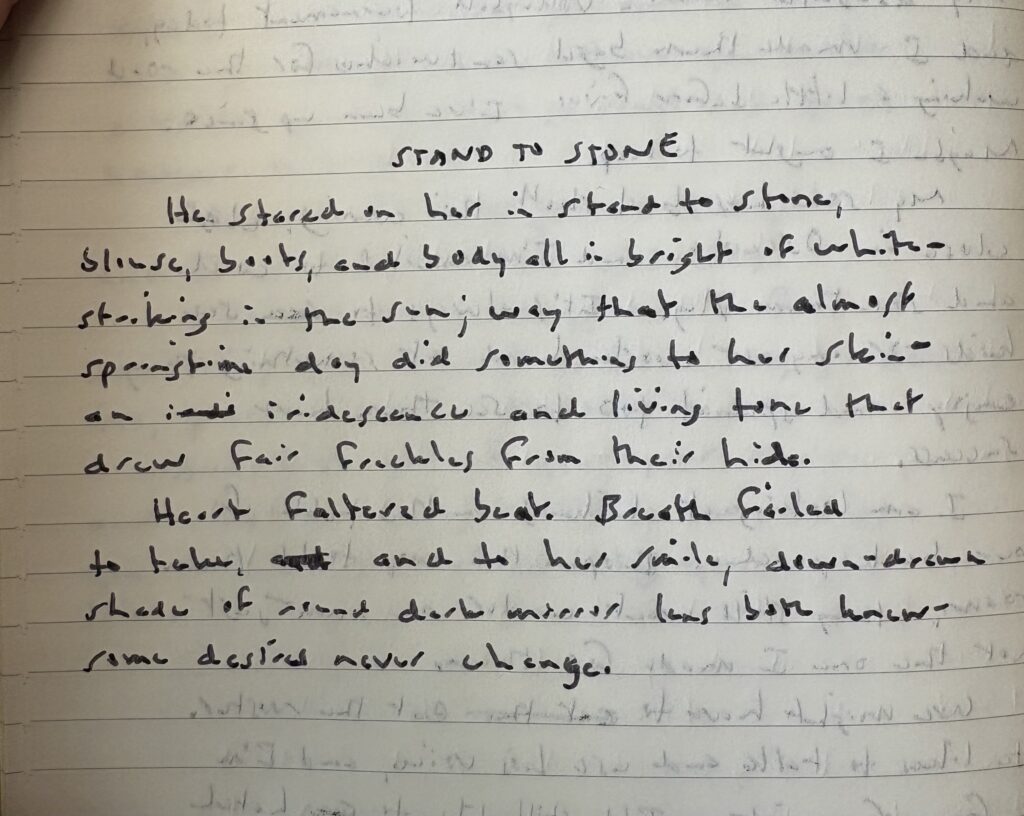 STAND TO STONE
He stared on her in stand to stone,
blouse, boots, and body all in bright of white-
striking in the sun; way that the almost
springtime day did something to her skin-
an iridescence and living tone that
drew fair freckles from their hide.
Heart faltered beat. Breath failed
to take, and to her smile, down-drawn
shade of round dark mirror lens both knew-
some desires never change.